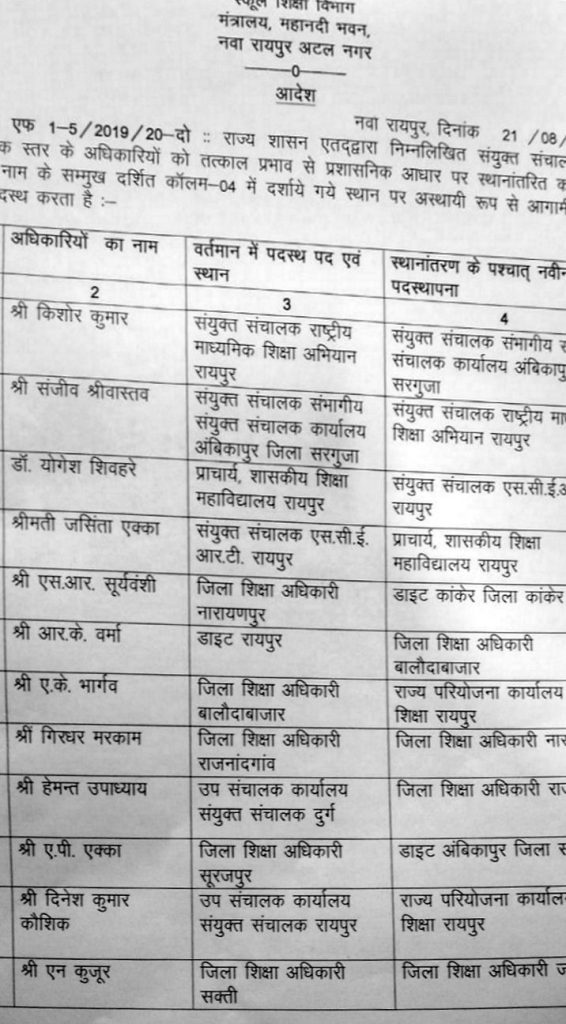 स्कूल शिक्षा विभाग
मंत्रालय, महानदी भवन,
नवा रायपुर अटल नगर
——0——
आदेश
नवा रायपुर, दिनांक 21 /08/
एफ 1-5/2019/20-दो :: राज्य शासन एतद्द्वारा निम्नलिखित संयुक्त
क स्तर के अधिकारियों को तत्काल प्रभाव से प्रशासनिक आधार पर स्थानांतरित
नाम के सम्मुख दर्शित कॉलम-04 में दर्शाये गये स्थान पर अस्थायी रूप से आगामी
दस्थ करता है :-
अधिकारियों का नाम
वर्तमान में पदस्थ पद एवं
स्थान
स्थानांतरण के पश्चात् नवीन
पदस्थापना
2
3
4
श्री किशोर कुमार
संयुक्त संचालक राष्ट्रीय
माध्यमिक शिक्षा अभियान
रायपुर
संयुक्त संचालक संभागीय
संचालक कार्यालय
सरगुजा
श्री संजीव श्रीवास्तव
संयुक्त संचालक संभागीय
संयुक्त संचालक कार्यालय
अंबिकापुर जिला सरगुजा
संयुक्त संचालक राष्ट्रीय
शिक्षा अभियान रायपुर
डॉ. योगेश शिवहरे
प्राचार्य, शासकीय शिक्षा
महाविद्यालय रायपुर
संयुक्त संचालक एस.सी.ई.
रायपुर
श्रीमती जसिंता एक्का
संयुक्त संचालक एस.सी.ई.
आर.टी. रायपुर
प्राचार्य, शासकीय शिक्षा
महाविद्यालय रायपुर
श्री एस.आर. सूर्यवंशी
जिला शिक्षा अधिकारी
नारायणपुर
डाइट कांकेर जिला कांकेर
श्री आर.के. वर्मा
डाइट रायपुर
जिला शिक्षा अधिकारी
बालौदाबाजार
श्री ए.के. भार्गव
जिला शिक्षा अधिकारी
बालौदाबाजार
राज्य परियोजना कार्यालय
शिक्षा रायपुर
श्रीं गिरधर मरकाम
जिला शिक्षा अधिकारी
राजनांदगांव
जिला शिक्षा अधिकारी
श्री हेमन्त उपाध्याय
उप संचालक कार्यालय
संयुक्त संचालक दुर्ग
जिला शिक्षा अधिकारी
श्री ए.पी. एक्का
जिला शिक्षा अधिकारी
सूरजपुर
डाइट अंबिकापुर जिला
श्री दिनेश कुमार
कौशिक
उप संचालक कार्यालय
संयुक्त संचालक रायपुर
राज्य परियोजना
शिक्षा रायपुर
श्री एन कुजूर
जिला शिक्षा अधिकारी
सक्ती
जिला शिक्षा अधिकारी